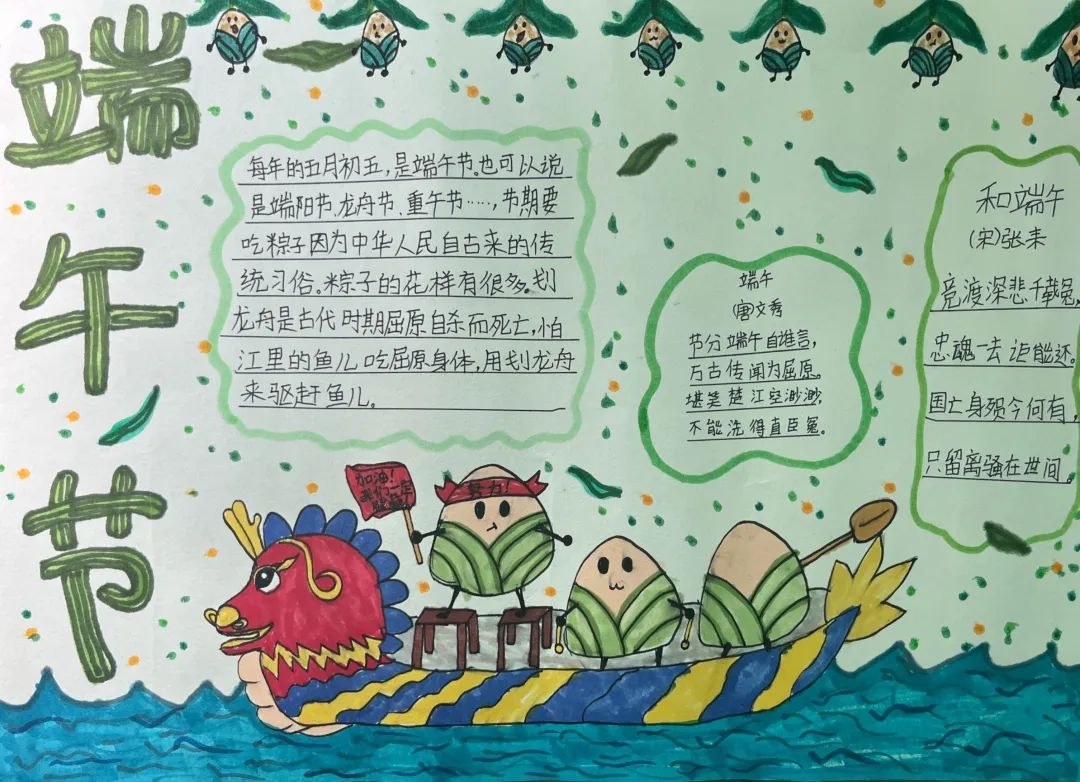 端午节
每年的五月初五,是端午节。也可以说
是端阳节、龙舟节、重午节……,节期要
吃粽子因为中华人民自古来的传
统习俗。粽子的花样有很多。划
龙舟是古代时期屈原自杀而死亡,怕
江里的鱼儿吃屈原身体,用划龙舟
来驱赶鱼儿。
端午
(唐)文秀
节分端午自谁言,
万古传闻为屈原。
堪笑楚江空渺渺,
不能洗得直臣冤。
和端午
(宋)张耒
竞渡深悲千载冤,
忠魂一去讵能还。
国亡身殒今何有,
只留离骚在世间。
加油!
我们一定
努力!